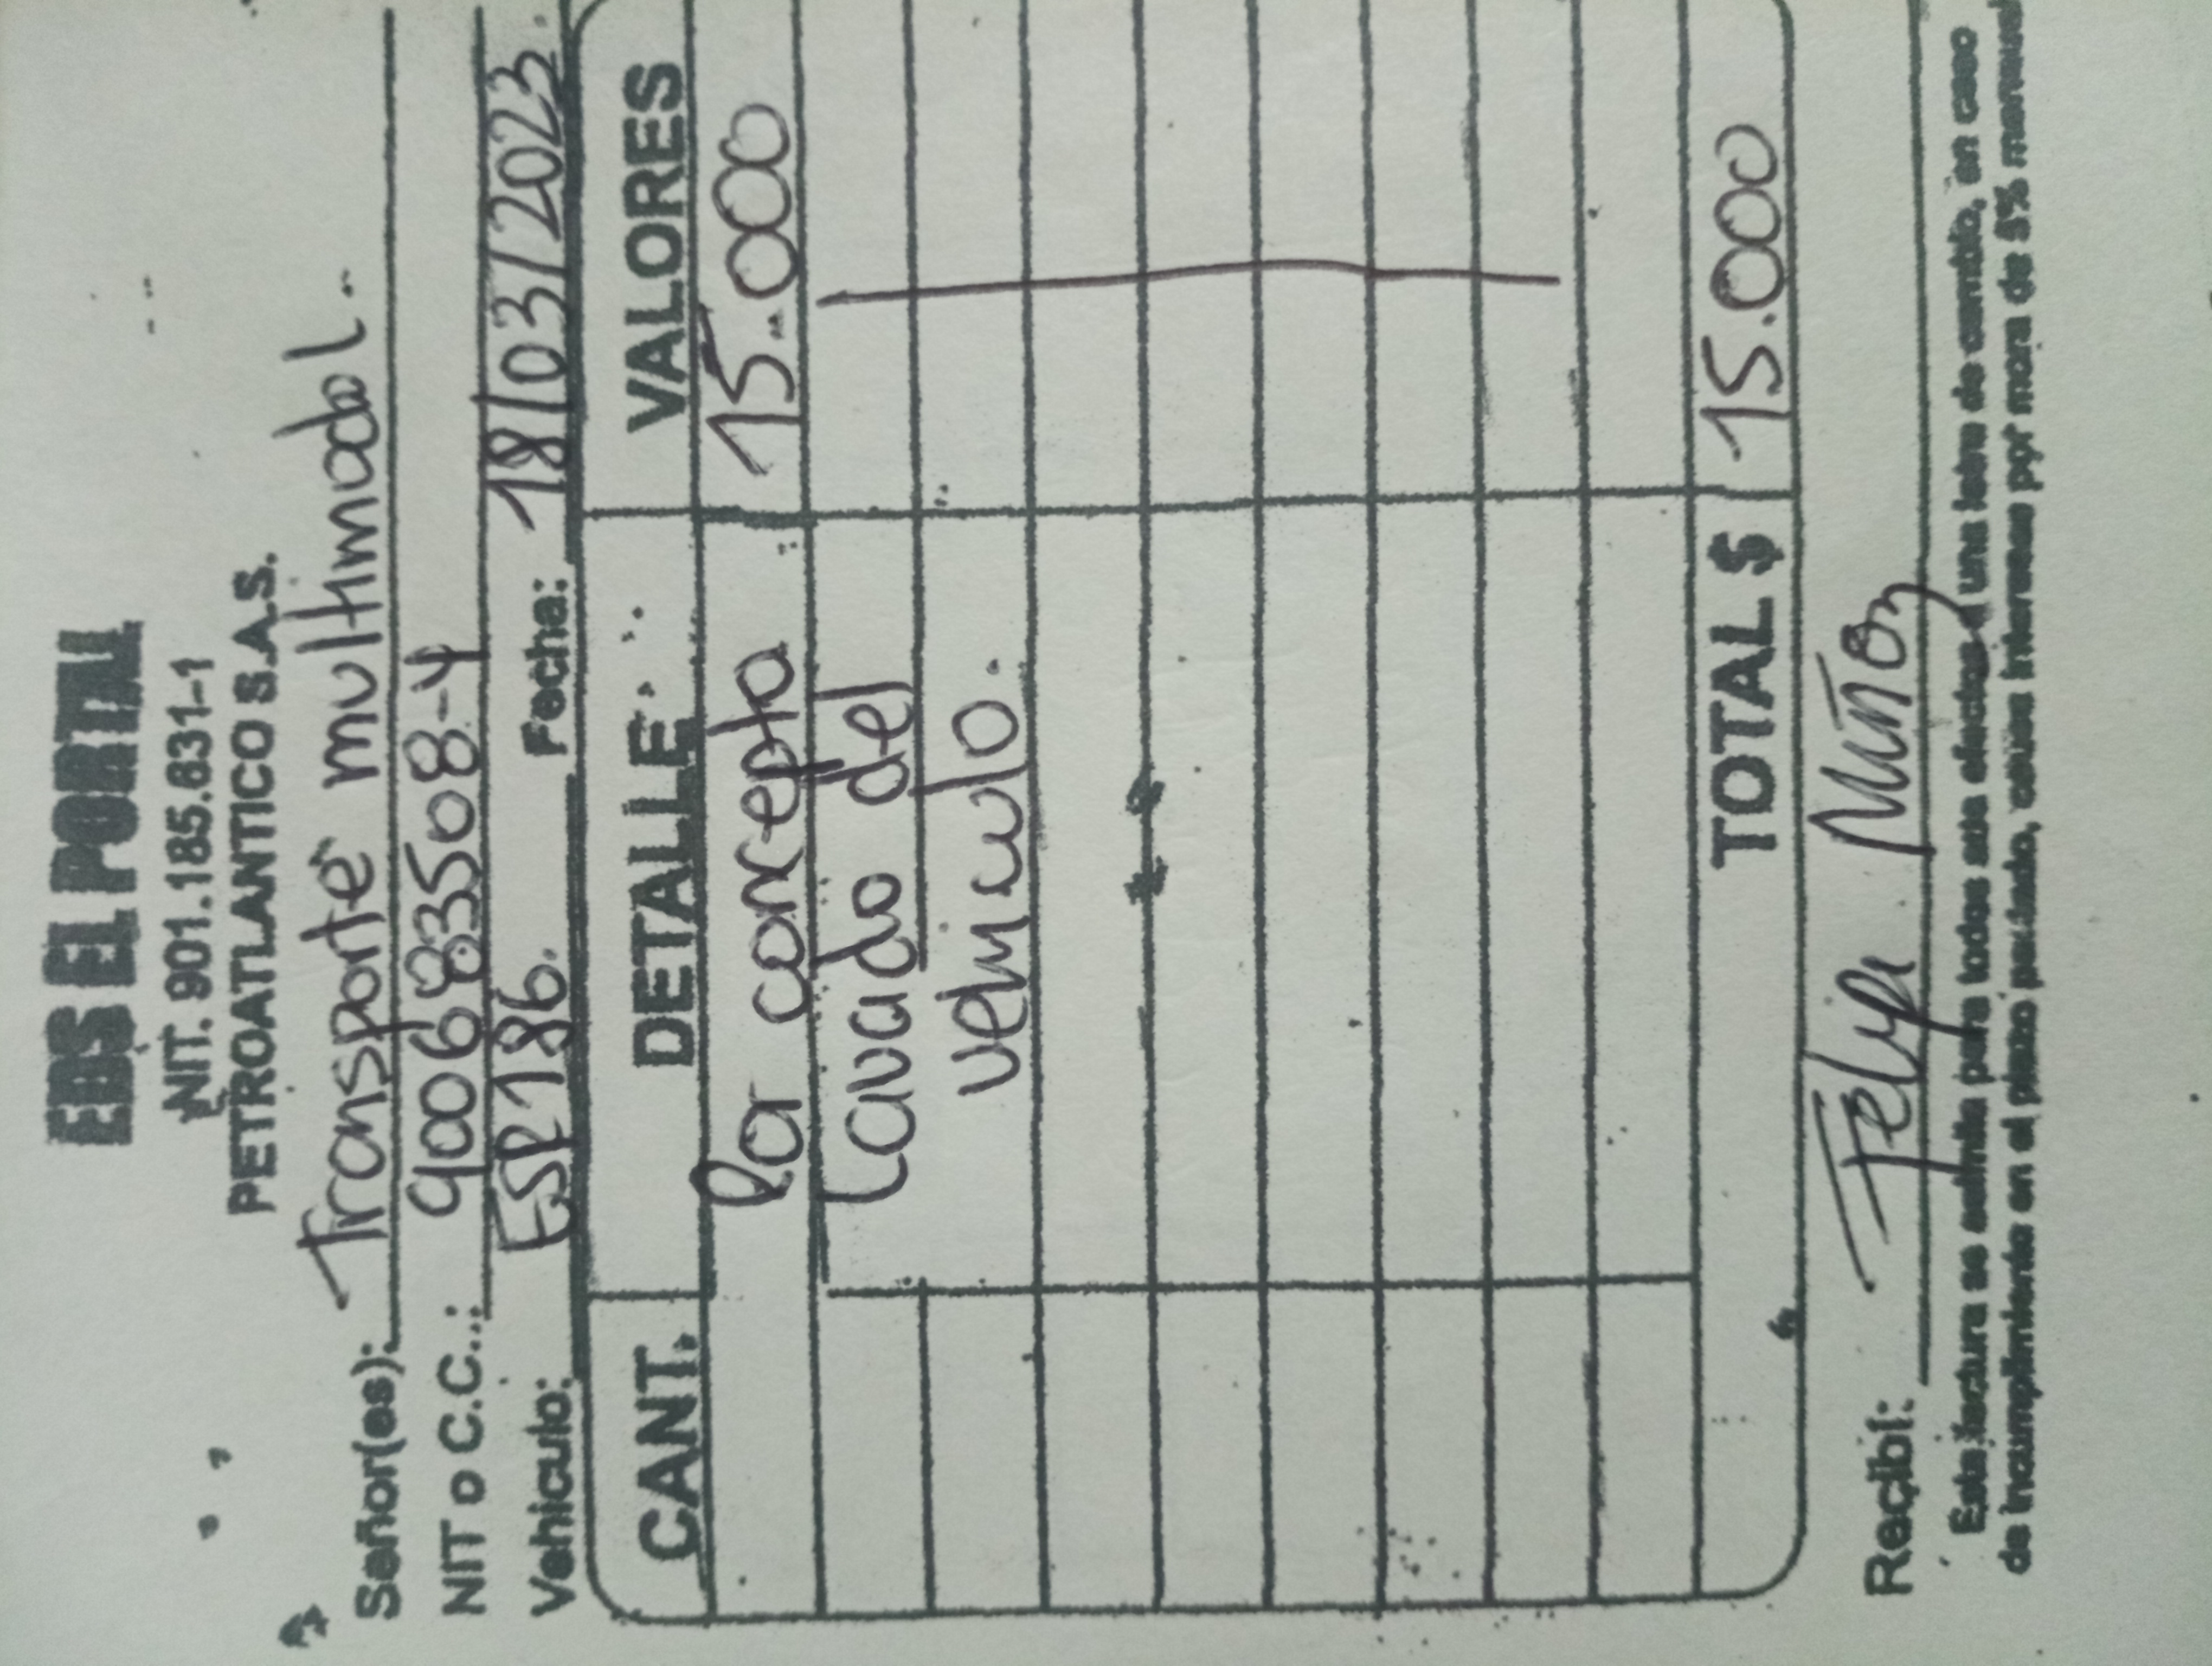 EDS EL PORTAL
NIT. 901.185.631-1
PETROATLANTICO S.A.S.
Señor(es): Transporte multimodal.
NIT o C.C.: 900683508-4
Vehiculo: ESP186. Fecha: 18/03/2023.
CANT. DETALLE VALORES
Por concepto 15.000
Lavado del
vehiculo.
TOTAL $ 15.000
Recibí: Felipe Muñoz
Esta factura se asimila para todos sus efectos a una letra de cambio, en caso
de incumplimiento en el plazo pactado, causa intereses por mora de 5% mensual